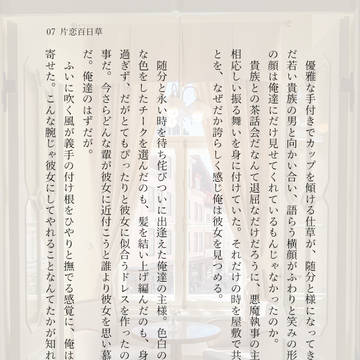 07 片恋百日草
優雅な手付きでカップを傾ける仕草が、随分と様になって
だ若い貴族の男と向かい合い、語らう横顔がふわりと笑みの形
の顔は俺達にだけ見せてくれているもんじゃなかったのか。
貴族との茶話会だなんて退屈なだけだろうに、悪魔執事の
相応しい振る舞いを身に付けていた。それだけの時を屋敷で共
とを、なぜだか誇らしく感じ俺は彼女を見つめる。
随分と永い時を待ち侘びついに出逢えた俺達の主様。色白の
な色をしたチークを選んだのも、髪を結い上げ編んだのも、身
過ぎず、だがとてもぴったりと彼女に似合うドレスを作ったの
事だ。今さらどんな輩が彼女に近付こうと誰より彼女を思い慕
だ。俺達のはずだが。
ふいに吹く風が義手の付け根をひやりと撫でる感覚に、俺は
寄せた。こんな腕じゃ彼女にしてやれることなんてたかが知れ